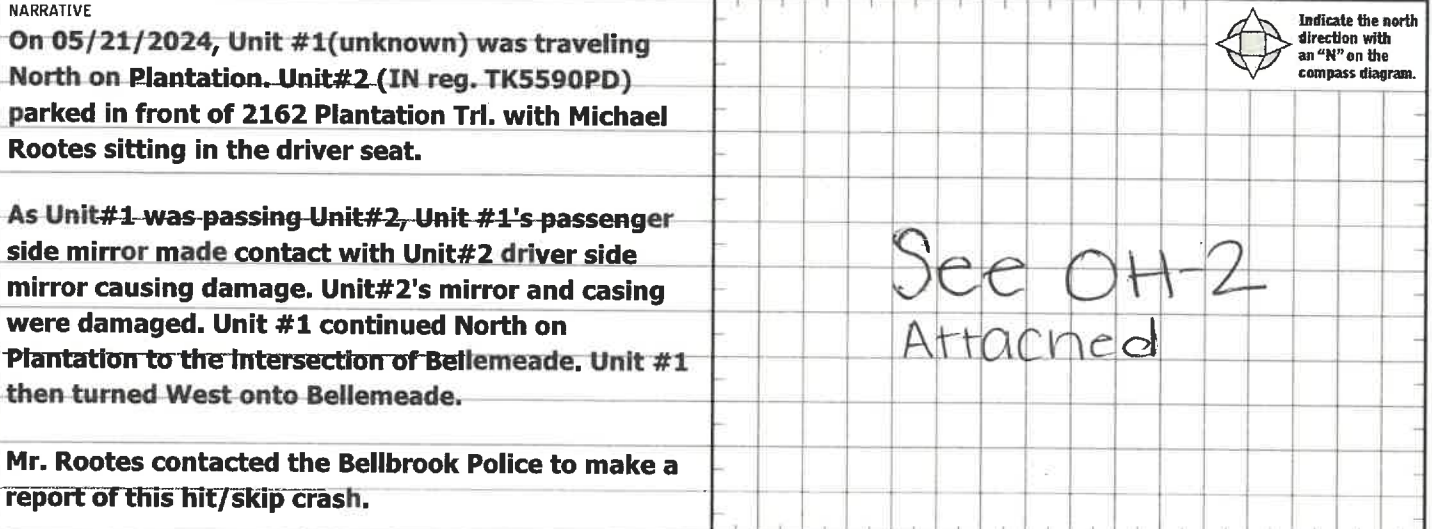 NARRATIVE
On 05/21/2024, Unit #1(unknown) was traveling
North on Plantation. Unit#2 (IN reg. TK5590PD)
parked in front of 2162 Plantation Trl. with Michael
Rootes sitting in the driver seat.
As Unit#1 was passing Unit#2, Unit #1's passenger
side mirror made contact with Unit#2 driver side
mirror causing damage. Unit#2's mirror and casing
were damaged. Unit #1 continued North on
Plantation to the intersection of Bellemeade. Unit #1
then turned West onto Bellemeade.
Mr. Rootes contacted the Bellbrook Police to make a
report of this hit/skip crash.
Indicate the north
direction with
an "N" on the
compass diagram.
See OH-2
Attached